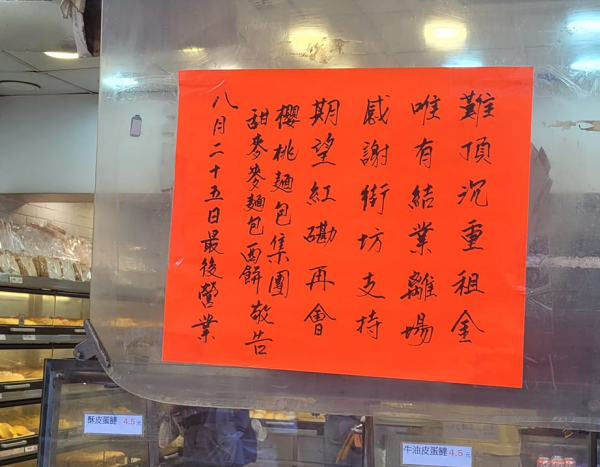 難頂沉重租金
唯有結業離場
感謝街坊支持
期望紅磡再會
櫻桃麵包集團
甜麥麥麵包西餅敬告
八月二十五日最後營業
酥皮蛋撻 4.5元
牛油皮蛋撻 4.5元